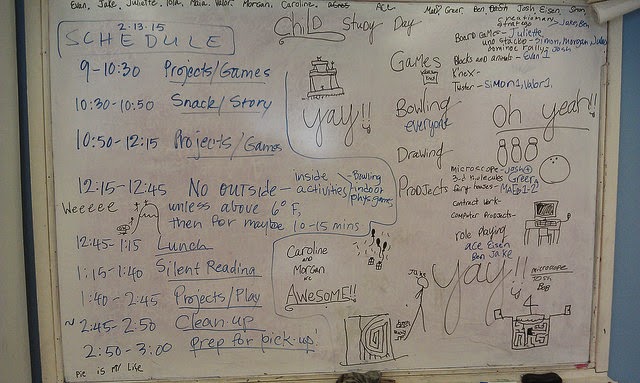 Evan, Jake, Juliette, Iola, Maia, Valor, Morgan, Caroline, Ace
Greer, Ben Josh, Eisen, Simon
2·13·15
SCHEDULE
Child Study Day
9-10:30 Projects/Games
10:30-10:50 Snack/Story
10:50-12:15 Projects/Games
12:15-12:45 No outside-
unless above 6° F,
then for maybe 10-15 mins
inside activities
Bowling
indoor
phys games
Weeeee
12:45-1:15 Lunch
1:15-1:40 Silent Reading
1:40-2:45 Projects/Play
~2:45-2:50 Clean up
2:50-3:00 prep for pick-up!
Pie is my life
yay!!
Caroline
and
Morgan
are
AWESOME!!
Games
Stratego - Jake, Ben
Board Games - Juliette
uno stacko - Simon, Morgan,
Domino Rally - Josh
Blocks and animals - Evan 1
K'nex -
Twister - Simon1, Valor1,
Bowling
everyone
oh yeah!!
Drawing
Projects
microscope - Josh
3-d molecules Greer
fairy houses - MAEb 1-2
contract work -
computer projects -
role playing
ace Eisen
Ben Jake
Jake
yay!!
microscope
Josh
Ben
4